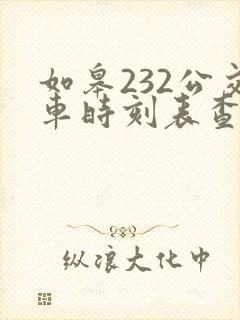 如皋232公交
車時刻表查
纵浪大化中